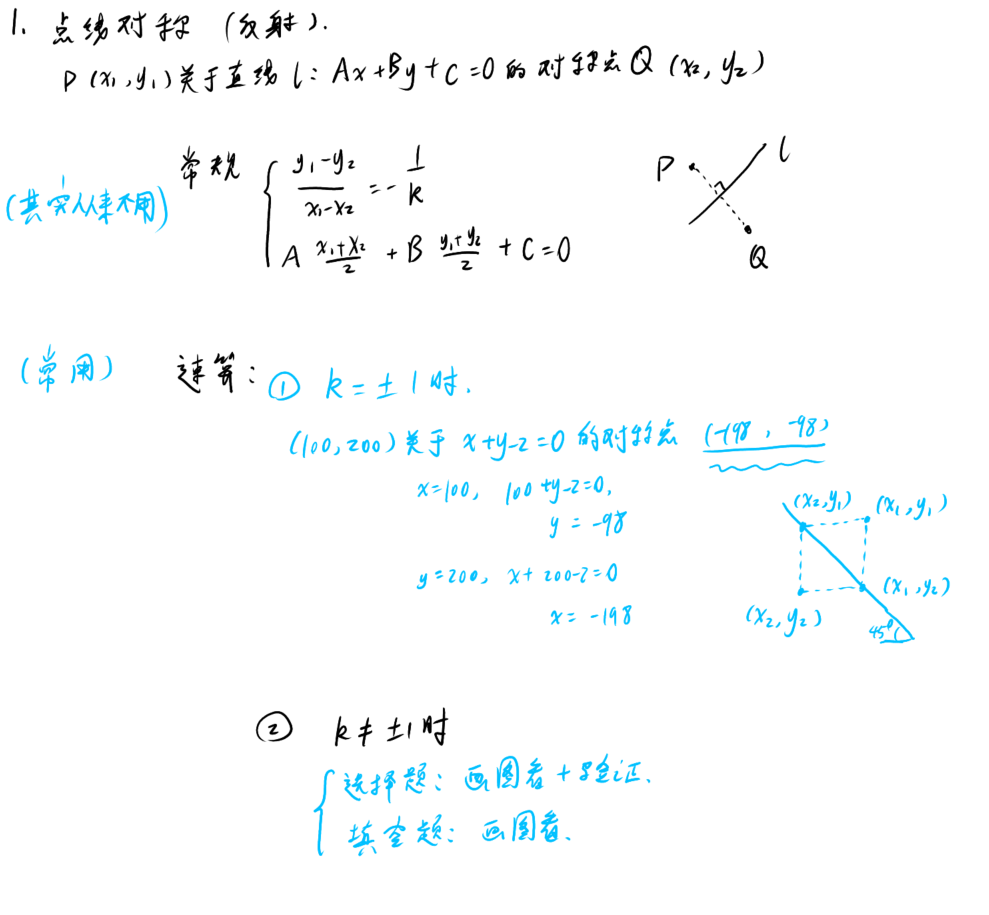 1. 点线对称 (反射).
P (x₁, y₁) 关于直线 l: Ax+By+C=0 的对称点 Q (x₂, y₂)
常规 { (y₁-y₂)/(x₁-x₂) = -1/k
(其实从来不用)
A (x₁+x₂)/2 + B (y₁+y₂)/2 + C=0
P l
Q
(常用) 速算: ① k=±1时.
(100, 200) 关于 x+y-2=0 的对称点 (-198, -98)
x=100, 100+y-2=0,
y = -98
y=200, x+200-2=0
x= -198
(x₂, y₁) (x₁, y₁)
(x₁, y₂)
(x₂, y₂)
45°
② k≠±1时
{ 选择题: 画图看+验证.
填空题: 画图看.